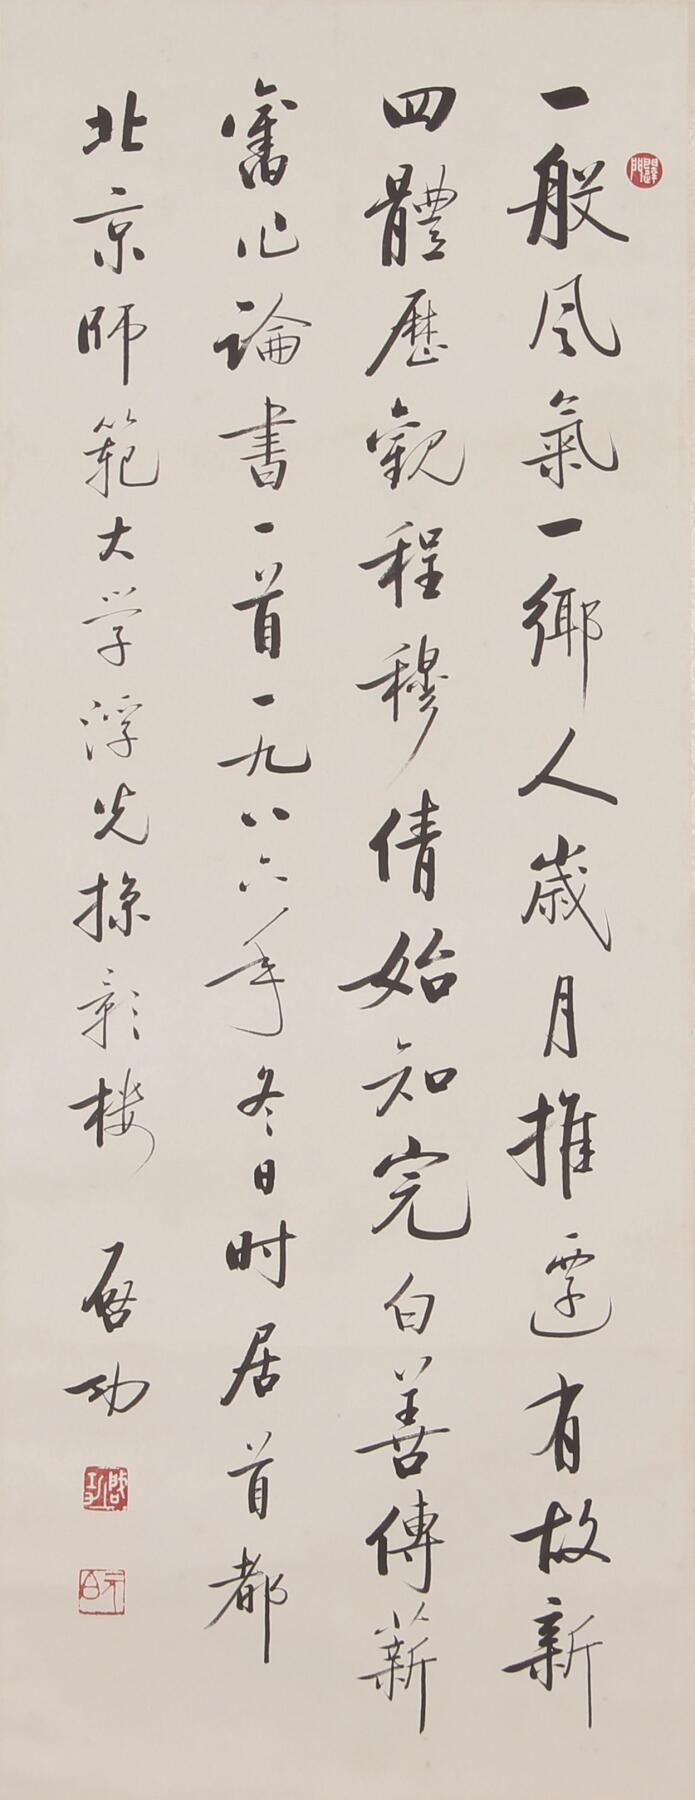 一般风氣一鄉人歲月推遷有故新
四體歷觀程穆倩始知完白善傳薪
舊作論書一首一九八六年冬日时居首都
北京师範大学浮光掠影楼
启功
启功
元白